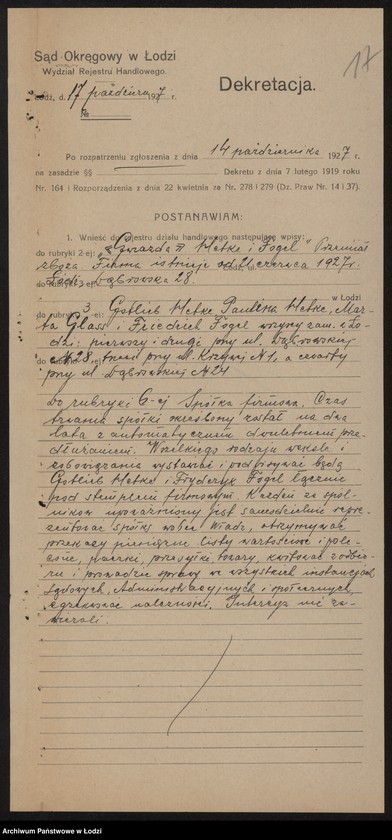 17
Sąd Okręgowy w Łodzi
Wydział Rejestru Handlowego.
Łódź, d. 17 października 1927 r.
№
Dekretacja.
Po rozpatrzeniu zgłoszenia z dnia 14 października 1927 r.
na zasadzie §§ Dekretu z dnia 7 lutego 1919 roku
Nr. 164 i Rozporządzenia z dnia 22 kwietnia za Nr. 278 i 279 (Dz. Praw Nr. 14 i 37).
POSTANAWIAM:
1. Wnieść do rejestru działu handlowego następujące wpisy:
do rubryki 2-ej: „Gwiazda" Metke i Fogel" Przemiał
zboża Firma istnieje od 21 czerwca 1927 r.
Łódź, Dąbrowska 28.
w Łodzi
do rubryki 3 Gotlieb Metke Paulina Metke, Mar-
ta Glass i Friedrich Fogel wszyscy zam. w Ło-
dzi: pierwszy i drugi przy ul. Dąbrowskiej
№ 28, trzeci przy ul. Krzywej № 1, a czwarty
przy ul. Dąbrowskiej № 24
Do rubryki 6-ej Spółka firmowa. Czas
trwania spółki określony został na dwa
lata z automatycznem dwuletniem prze-
dłużaniem. Wszelkiego rodzaju weksle i
zobowiązania wystawiać i podpisywać będą
Gotlieb Metke i Fryderyk Fogel łącznie
pod stemplem firmowym. Każden ze spól-
ników upoważniony jest samodzielnie repre-
zentować spółkę wobec władz, otrzymywać
przekazy pieniężne listy wartościowe i pole-
cone, paczki, przesyłki towary, kwitować z odbio-
ru i prowadzić sprawy we wszystkich instancjach
Sądowych, Administracyjnych i społecznych,
egzekwować należności. Intercyz nie za-
warli.
Archiwum Państwowe w Łodzi